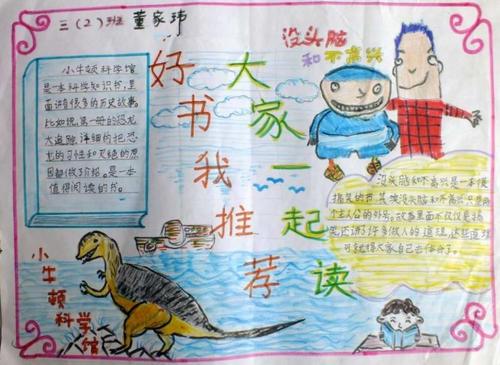 三（2）班 董家玮
没头脑
和不高兴
好书我推荐
大家一起读
小牛顿科学馆
是一本科学知识书，里
面讲有很多的历史故事，
比如说，第一册的恐龙
大追踪，详细的把恐
龙的习性和灭绝的原
因都做了介绍。是一本
值得阅读的书。
没头脑和不高兴是一本很
搞笑的书，其实没头脑和不高兴只是两
个主人公的外号。故事里面不仅仅是搞
笑还讲了许多做人的道理，这些道理
可就得大家自己去体会了。
小牛顿科学馆